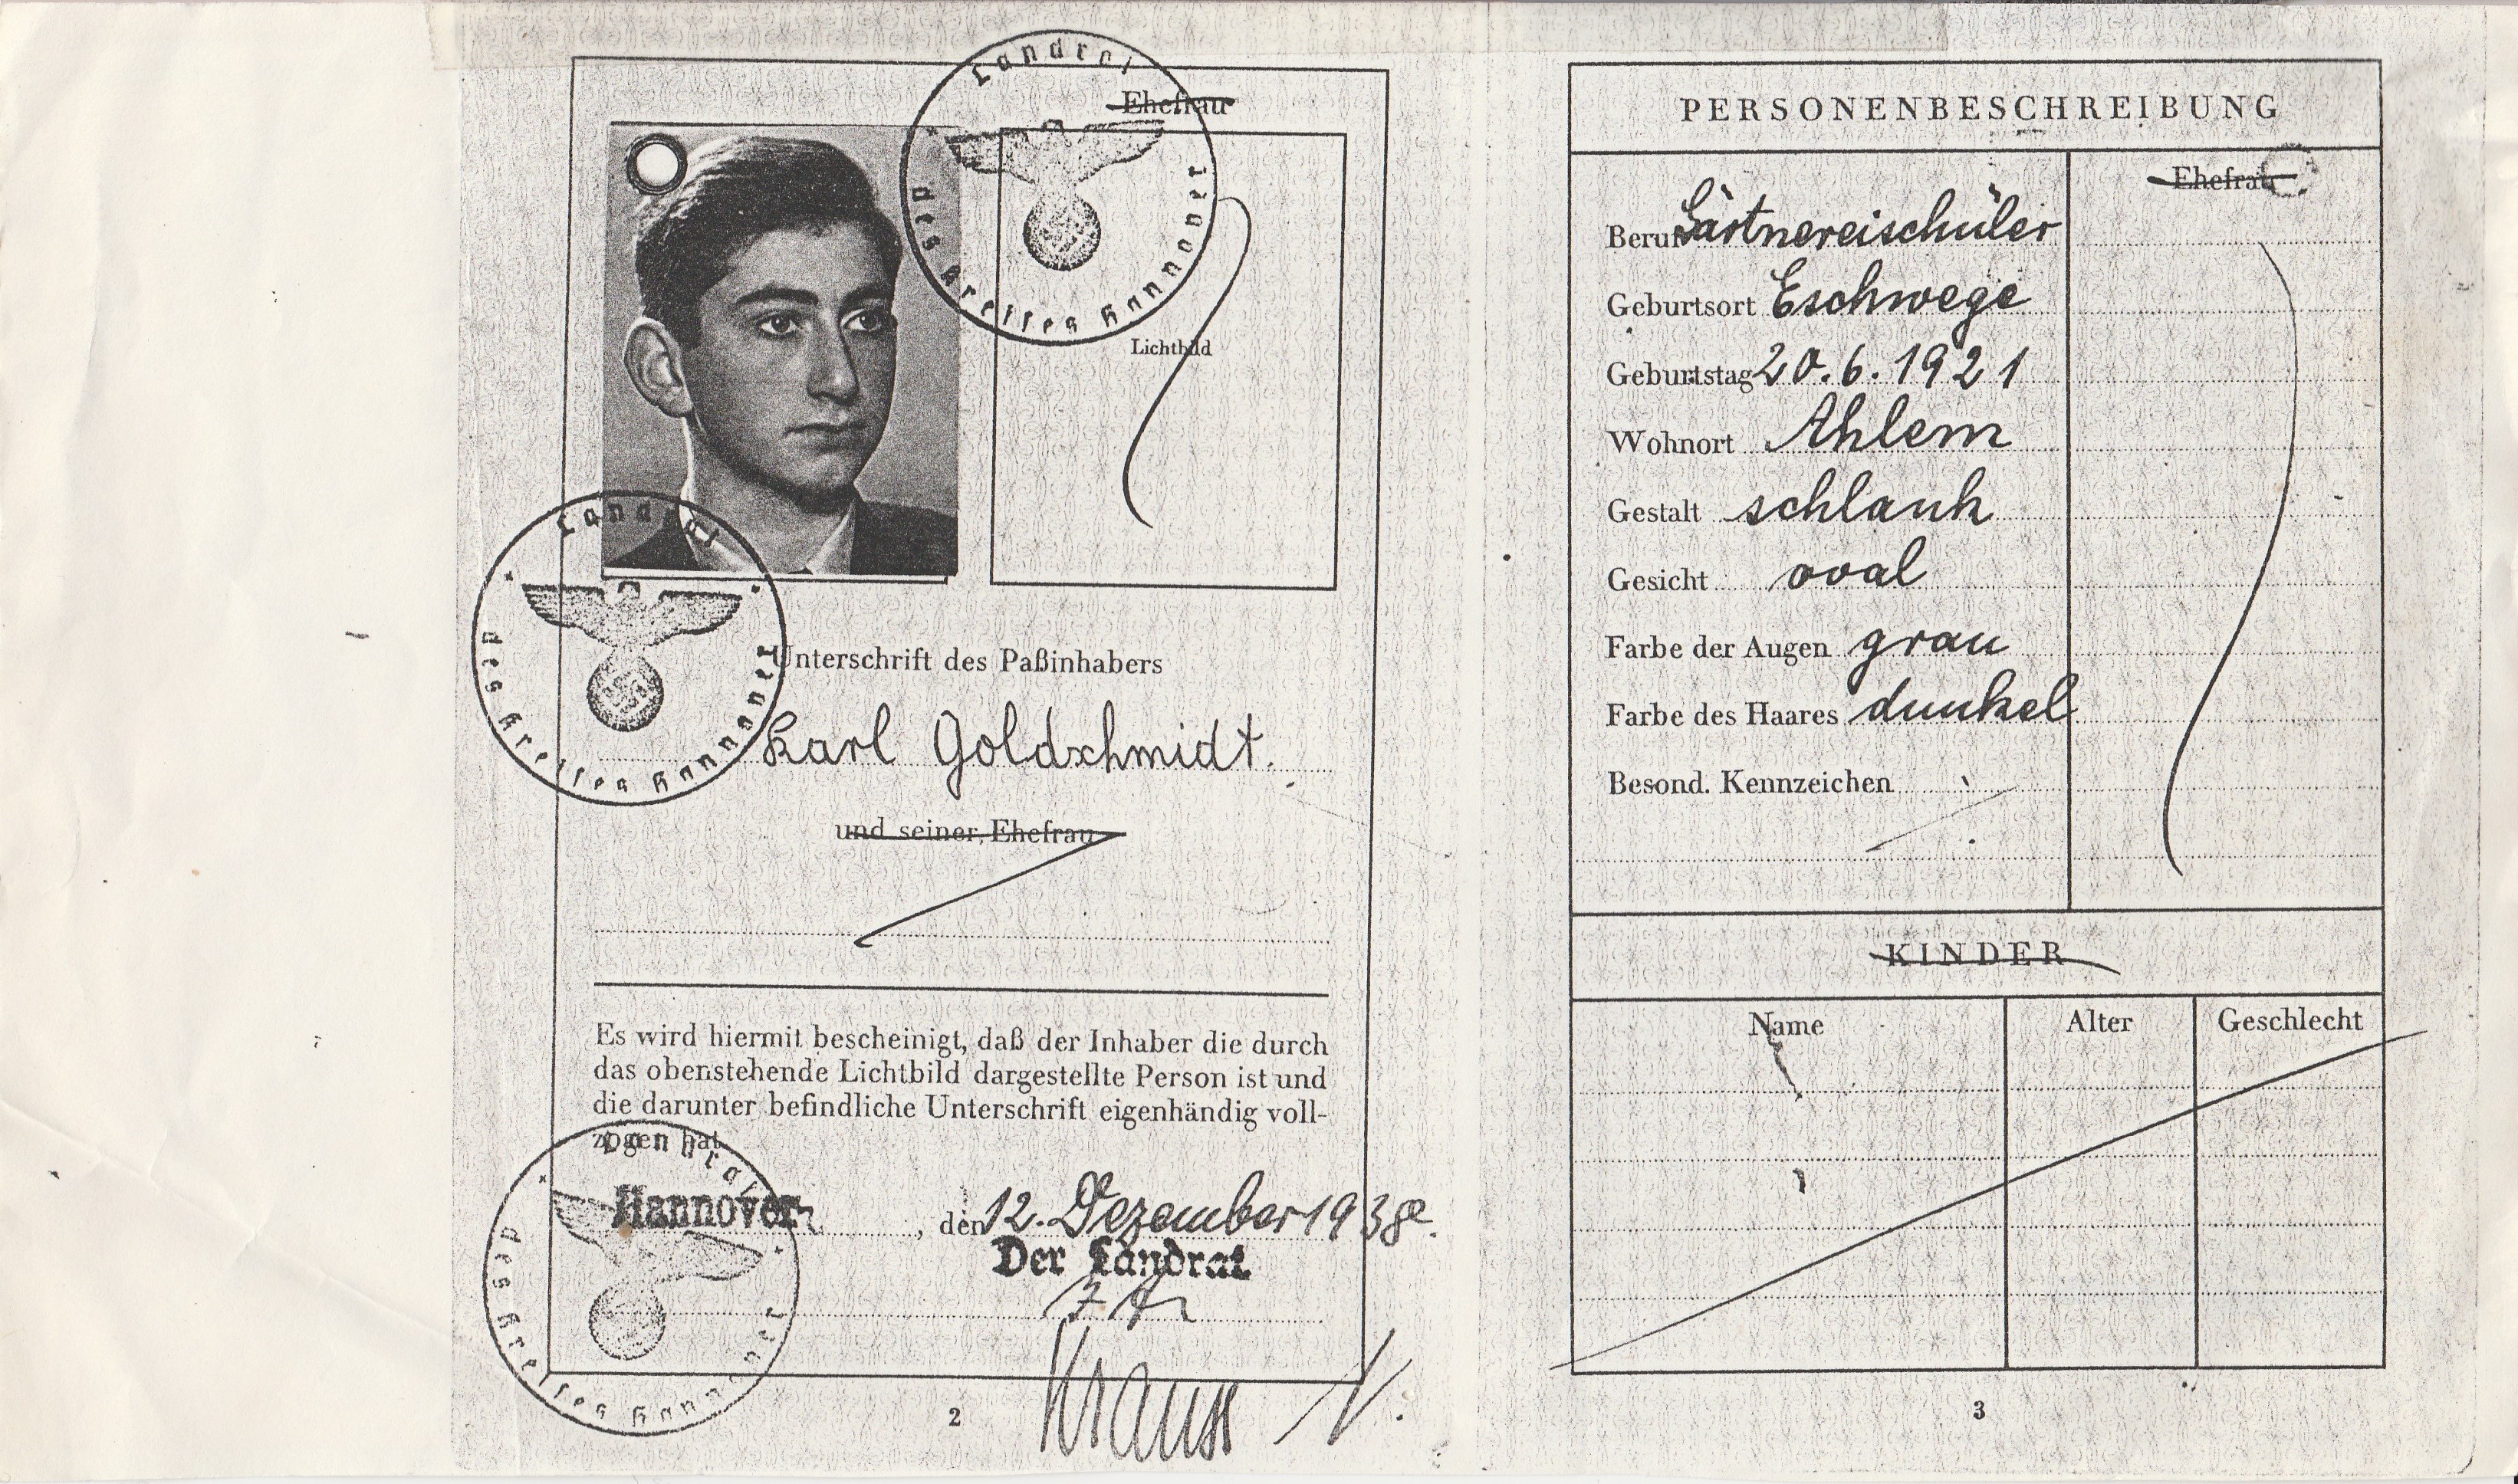 Ehefrau
Landrat
des Kreises Hannover
Lichtbild
Landrat
des Kreises Hannover
Unterschrift des Paßinhabers
Karl Goldschmidt.
und seiner Ehefrau
Es wird hiermit bescheinigt, daß der Inhaber die durch
das obenstehende Lichtbild dargestellte Person ist und
die darunter befindliche Unterschrift eigenhändig voll-
zogen hat
Landrat
des Kreises Hannover
Hannover, den 12. Dezember 1938.
Der Landrat
Krauss
2
PERSONENBESCHREIBUNG
Ehefrau
Beruf Gärtnereischüler
Geburtsort Eschwege
Geburtstag 20.6.1921
Wohnort Ahlem
Gestalt schlank
Gesicht oval
Farbe der Augen grau
Farbe des Haares dunkel
Besond. Kennzeichen
KINDER
Name Alter Geschlecht
3